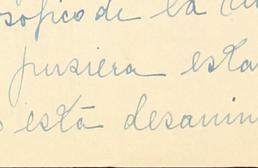 sofico de la
pusiera esta
está desanim